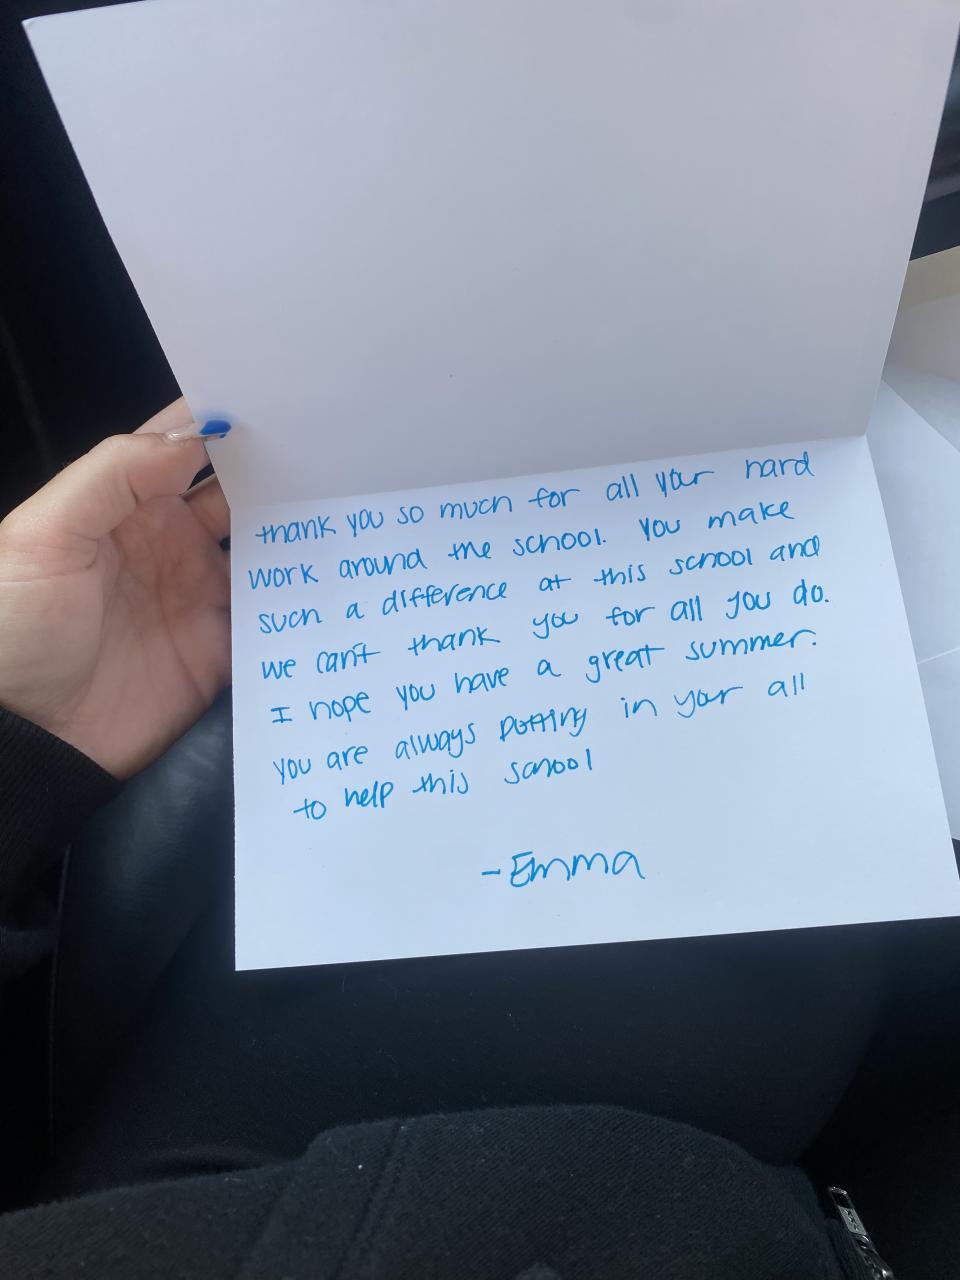 thank you so much for all your hard
work around the school. You make
such a difference at this school and
we can't thank you for all you do.
I hope you have a great summer.
you are always putting in your all
to help this school
-Emma